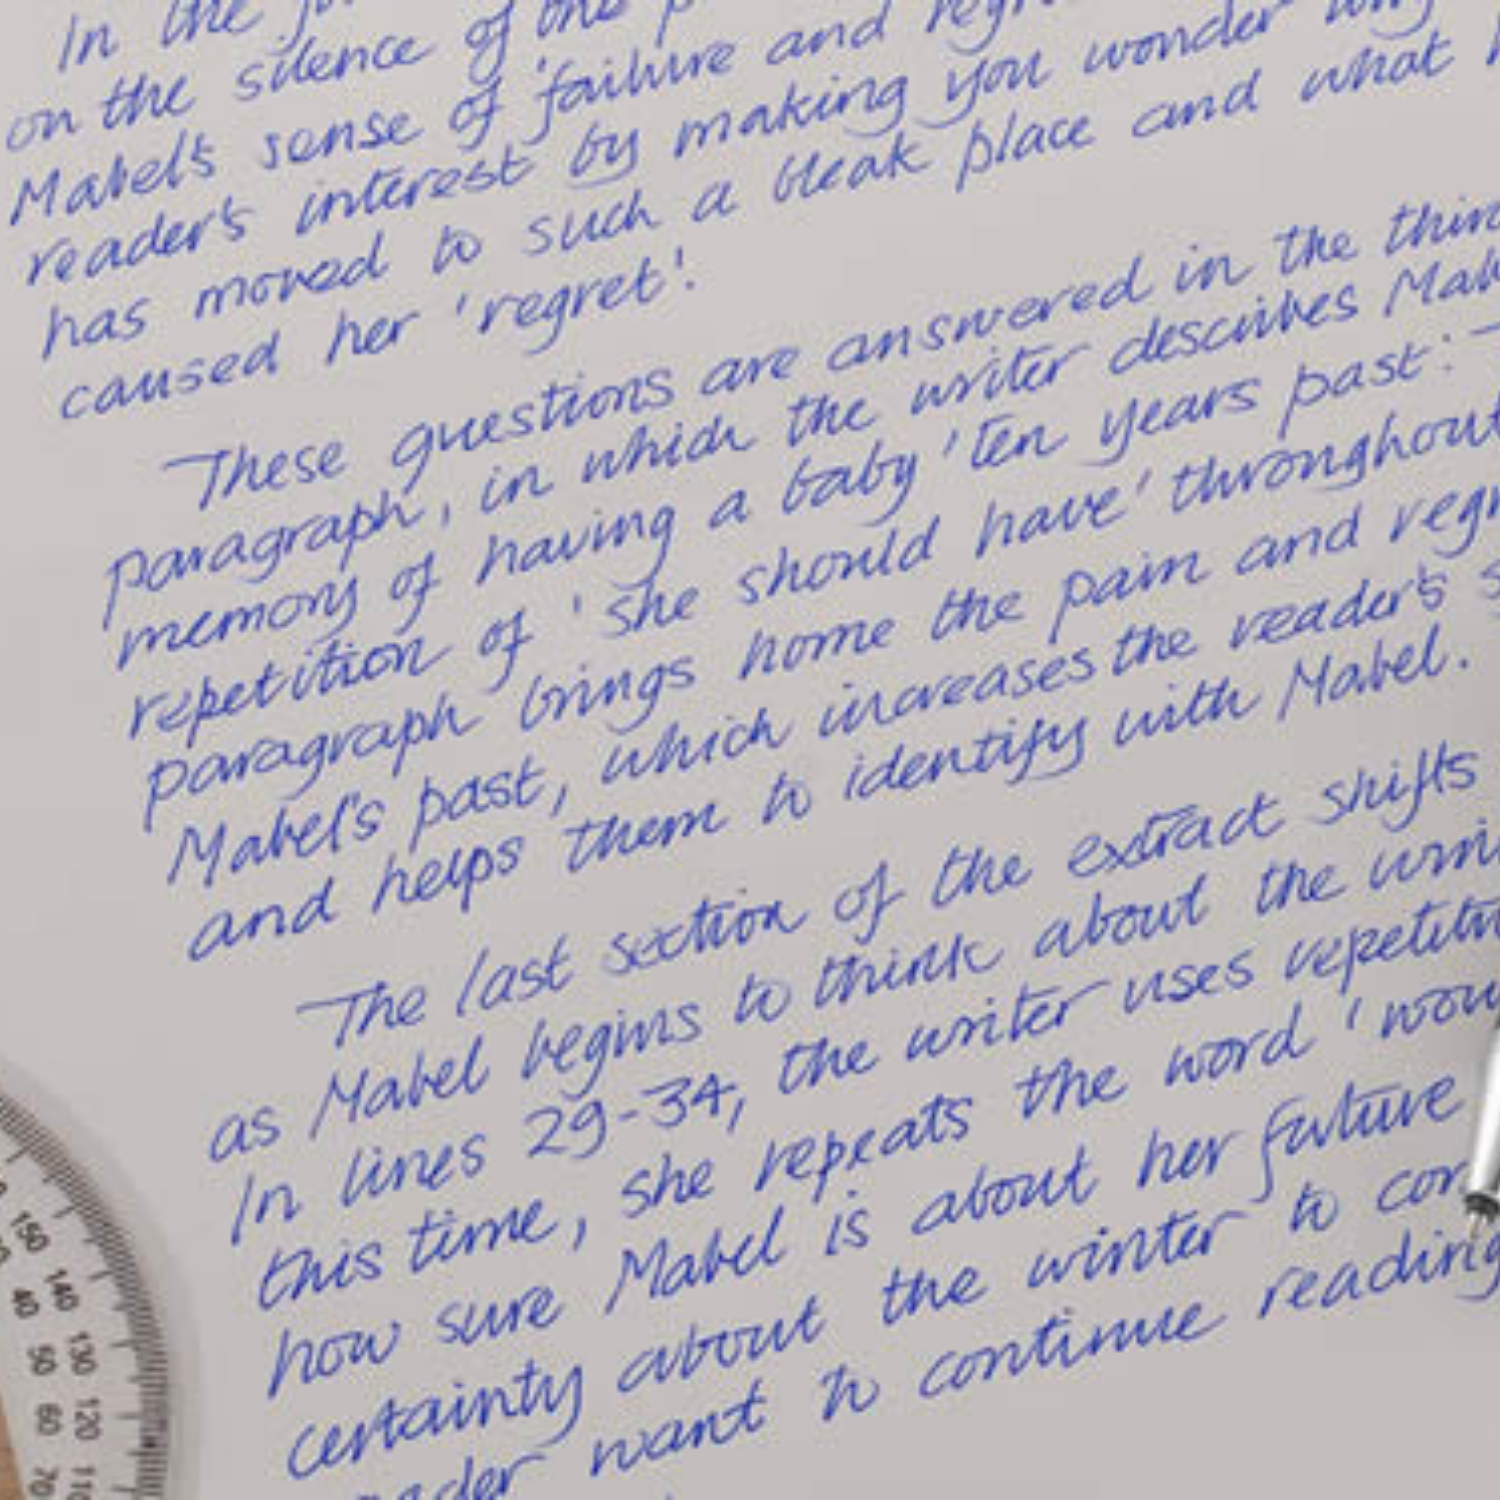 In the
on the silence of one
Mabel's sense of failure and
reader's interest by making you wonder
has moved to such a bleak place and what
caused her 'regret'.
These questions are answered in the third
paragraph, in which the writer describes
memory of having a baby 'ten years past'.
repetition of 'she should have' throughout
paragraph brings home the pain and
Mabel's past, which increases the reader's
and helps them to identify with Mabel.
The last section of the extract shifts
as Mabel begins to think about the
In lines 29-34, the writer uses
this time, she repeats the word
how sure Mabel is about her future
certainty about the winter to
want to continue reading
150
140
40
130
50
120
60
110
70